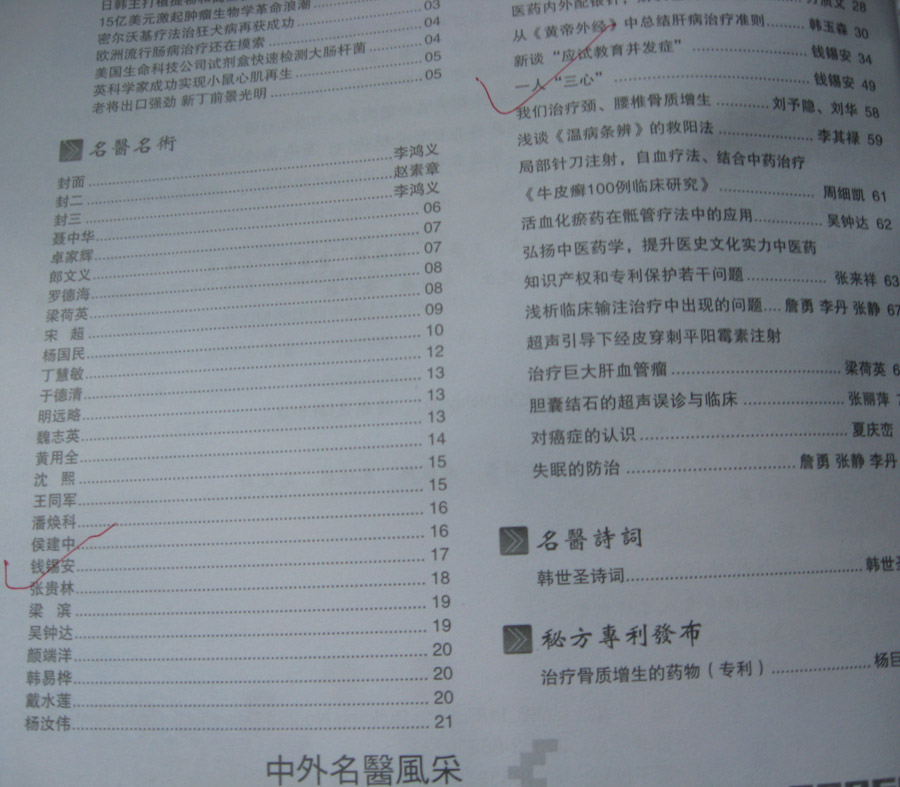 日韩主打植提物
15亿美元激起肿瘤生物学革命浪潮
密尔沃基疗法治狂犬病再获成功 03
欧洲流行肠病治疗还在摸索 04
美国生命科技公司试剂盒快速检测大肠杆菌 04
英科学家成功实现小鼠心肌再生 05
老将出口强劲 新丁前景光明 05
名醫名術
封面 李鸿义
封二 赵素章
封三 李鸿义
聂中华 06
卓家辉 07
郎文义 07
罗德海 08
梁荷英 08
宋 超 09
杨国民 10
丁慧敏 12
于德清 13
明远略 13
魏志英 13
黄用全 14
沈 熙 15
王同军 15
潘焕科 16
侯建中 16
钱锡安 17
张贵林 18
梁 滨 19
吴钟达 19
颜端洋 20
韩易桦 20
戴水莲 20
杨汝伟 21
医药内外配银针 28
从《黄帝外经》中总结肝病治疗准则 韩玉森 30
新谈“应试教育并发症” 钱锡安 34
一人“三心” 钱锡安 49
我们治疗颈、腰椎骨质增生 刘予隐、刘华 58
浅谈《温病条辨》的救阳法 李其禄 59
局部针刀注射，自血疗法、结合中药治疗
《牛皮癣100例临床研究》 周细凯 61
活血化瘀药在骶管疗法中的应用 吴钟达 62
弘扬中医药学，提升医史文化实力中医药
知识产权和专利保护若干问题 张来祥 63
浅析临床输注治疗中出现的问题 詹勇 李丹 张静 67
超声引导下经皮穿刺平阳霉素注射
治疗巨大肝血管瘤 梁荷英
胆囊结石的超声误诊与临床 张丽萍
对癌症的认识 夏庆峦
失眠的防治 詹勇 张静 李丹
名醫詩詞
韩世圣诗词 韩世圣
秘方專利發布
治疗骨质增生的药物（专利） 杨
中外名醫風采